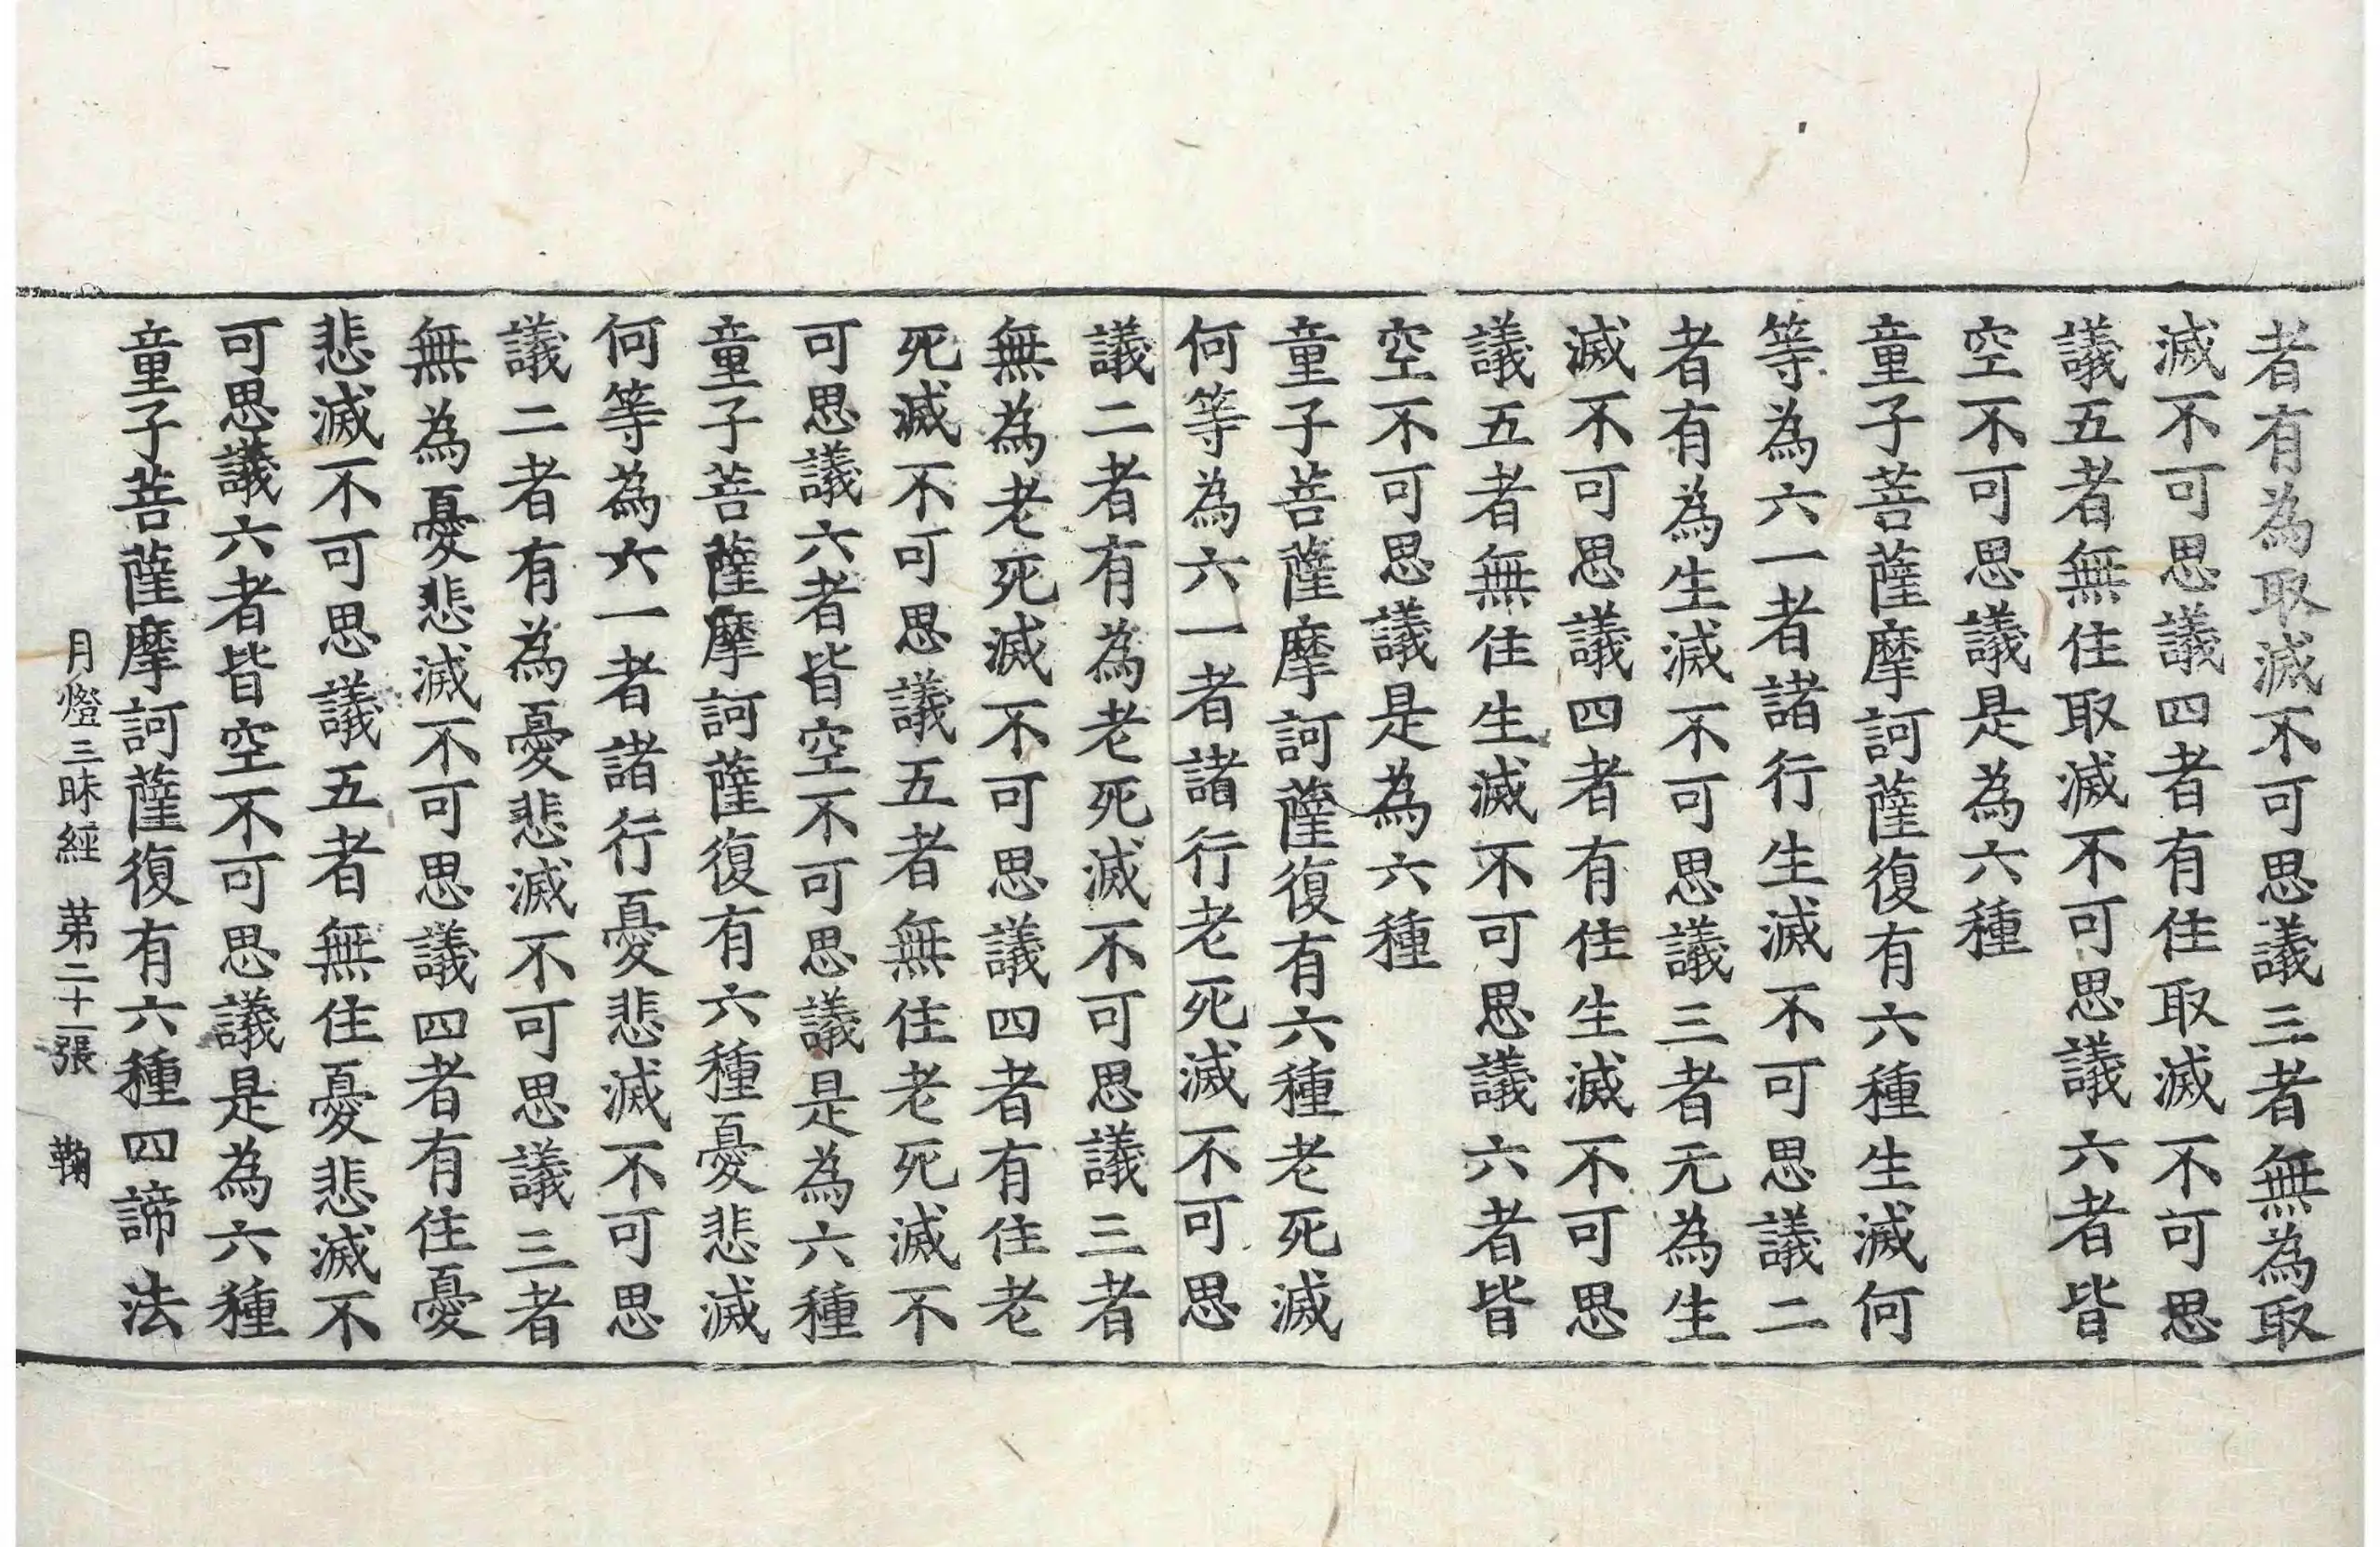 者有為取滅不可思議三者無為取
滅不可思議四者有住取滅不可思
議五者無住取滅不可思議六者皆
空不可思議是為六種
童子菩薩摩訶薩復有六種生滅何
等為六一者諸行生滅不可思議二
者有為生滅不可思議三者无為生
滅不可思議四者有住生滅不可思
議五者無住生滅不可思議六者皆
空不可思議是為六種
童子菩薩摩訶薩復有六種老死滅
何等為六一者諸行老死滅不可思
議二者有為老死滅不可思議三者
無為老死滅不可思議四者有住老
死滅不可思議五者無住老死滅不
可思議六者皆空不可思議是為六種
童子菩薩摩訶薩復有六種憂悲滅
何等為六一者諸行憂悲滅不可思
議二者有為憂悲滅不可思議三者
無為憂悲滅不可思議四者有住憂
悲滅不可思議五者無住憂悲滅不
可思議六者皆空不可思議是為六種
童子菩薩摩訶薩復有六種四諦法
月燈三昧經 第二十一張 鞠